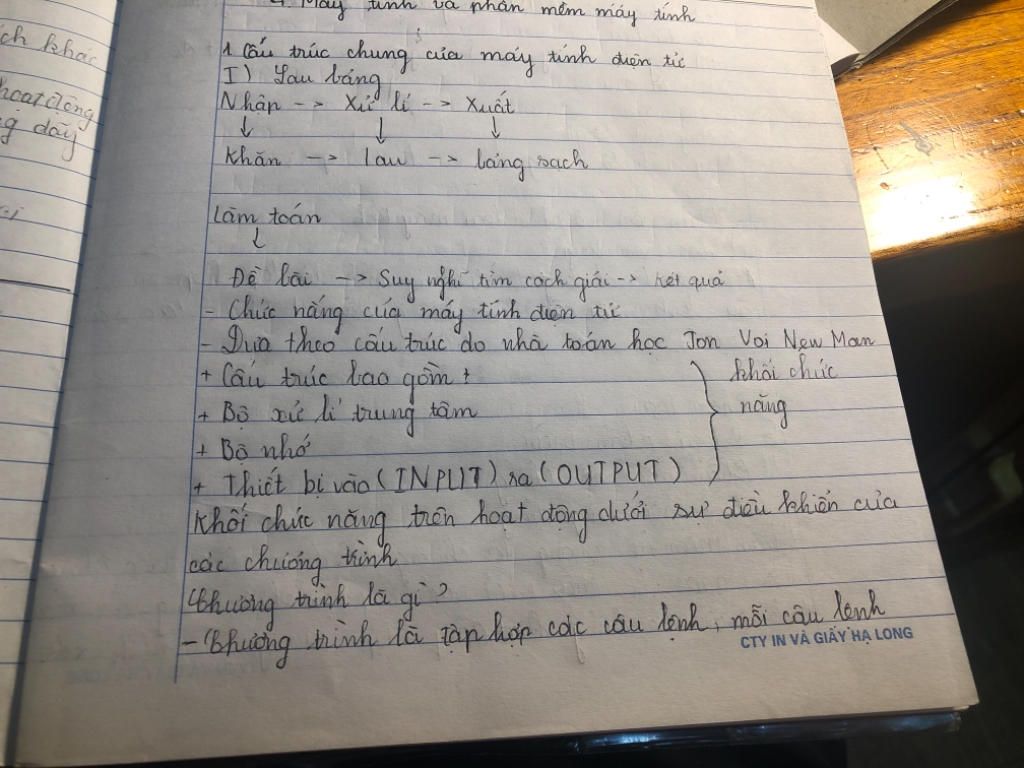 ch khác
hoạt động
g dãy
4. Máy tính và phần mềm máy tính
1. Cấu trúc chung của máy tính điện tử
I) Lau bảng
Nhập -> Xử lí -> Xuất
↓ ↓ ↓
Khăn -> lau -> bảng sạch
Làm toán
↓
Đề bài -> Suy nghĩ tìm cách giải -> kết quả
- Chức năng của máy tính điện tử
- Dựa theo cấu trúc do nhà toán học Jon Voi New Man
+ Cấu trúc bao gồm:
+ Bộ xử lí trung tâm
+ Bộ nhớ
+ Thiết bị vào (INPUT) ra (OUTPUT)
khối chức
năng
Khối chức năng trên hoạt động dưới sự điều khiển của
các chương trình
Chương trình là gì?
- Chương trình là tập hợp các câu lệnh, mỗi câu lệnh
CTY IN VÀ GIẤY HẠ LONG